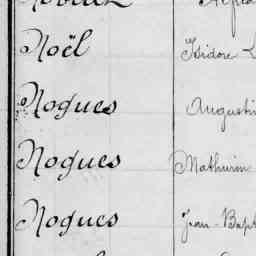 Noël Isidore
Nogues Augustin
Nogues Mathurin
Nogues Jean-Bapt